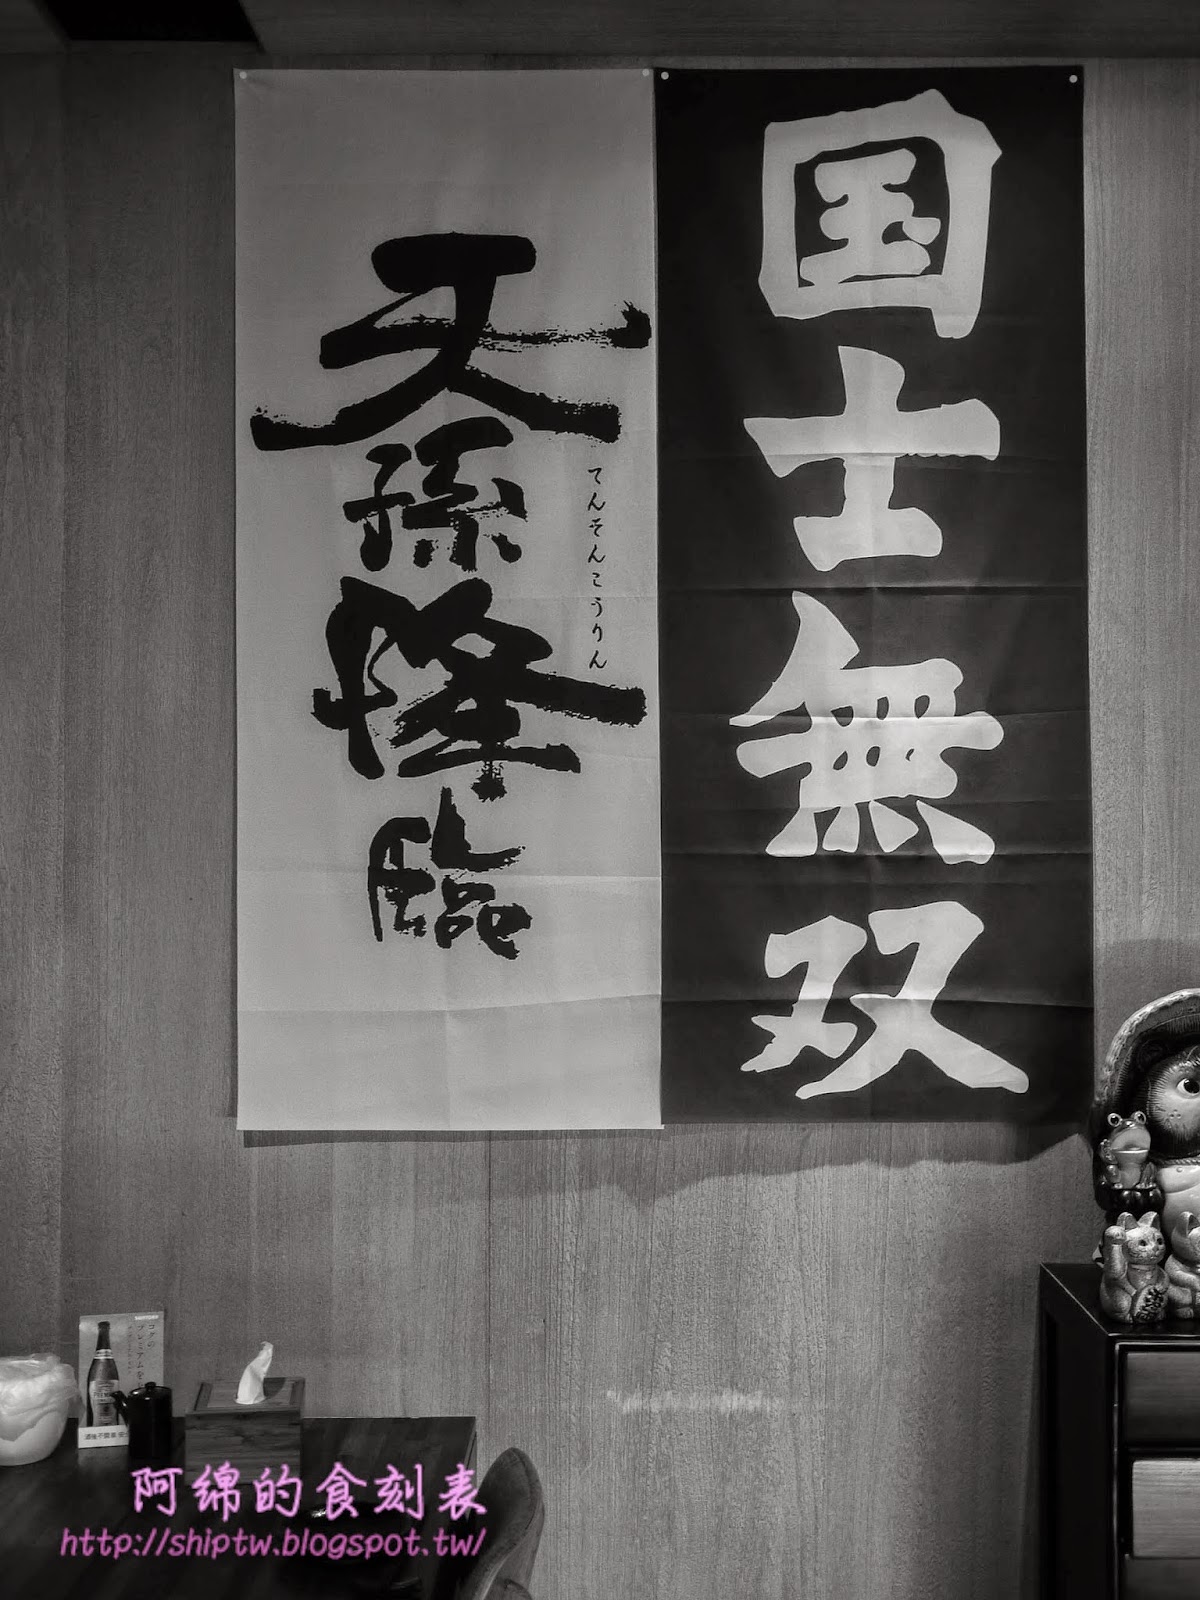 国士無双
天孫降臨
てんそんこうりん
プレミアムを
阿綿的食刻表
http://shiptw.blogspot.tw/